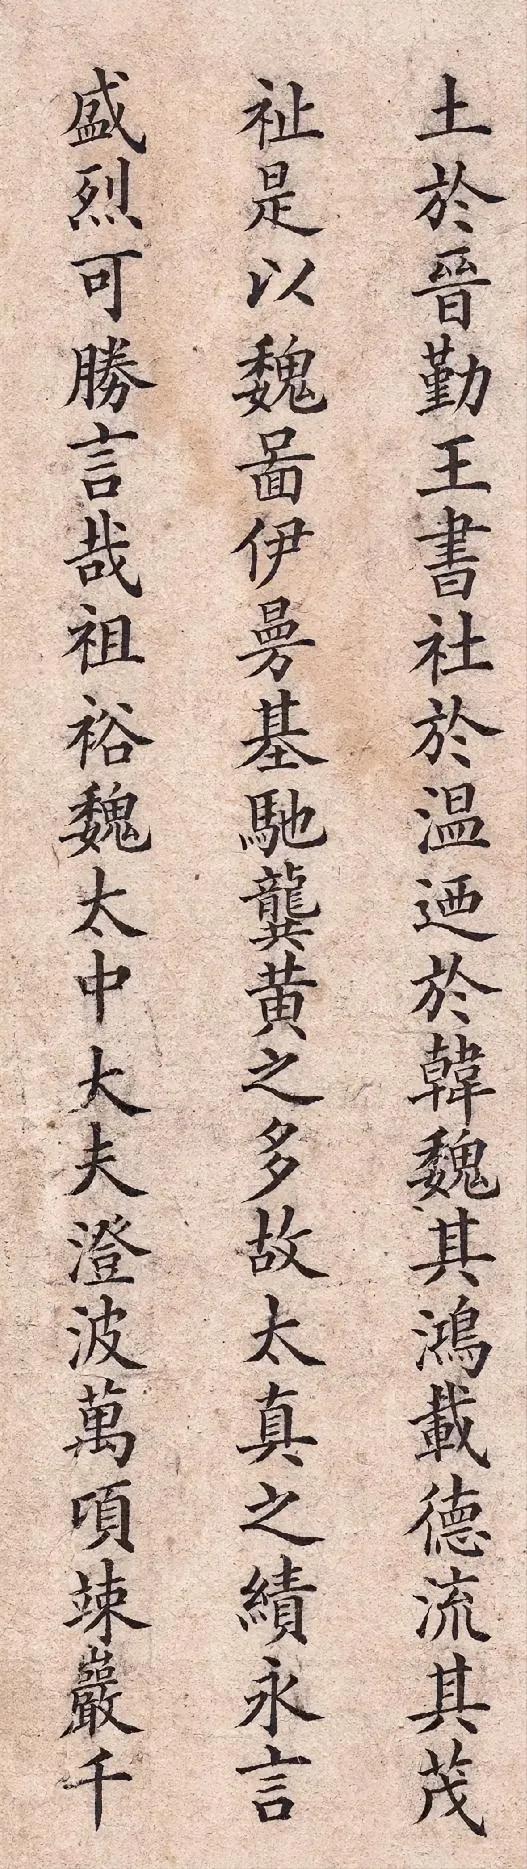 土於晉勤王書社於温迺於韓魏其鴻載德流其茂
祉是以魏啚伊㬅基馳龔黄之多故太真之績永言
盛烈可勝言哉祖裕魏太中大夫澄波萬項竦巖千